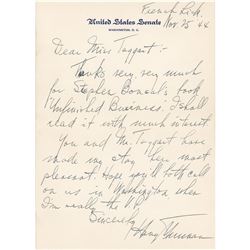 French Lick
Nov 25 44
United States Senate
WASHINGTON, D. C.
Dear Miss Taggart:-
Thanks very, very much
for Stephen Bonsal's book
"Unfinished Business". I shall
read it with much interest.
You and Mr. Taggart have
made my stay here most
pleasant. Hope you'll both call
on us in Washington when
I'm really the VP.
Sincerely
Harry Truman